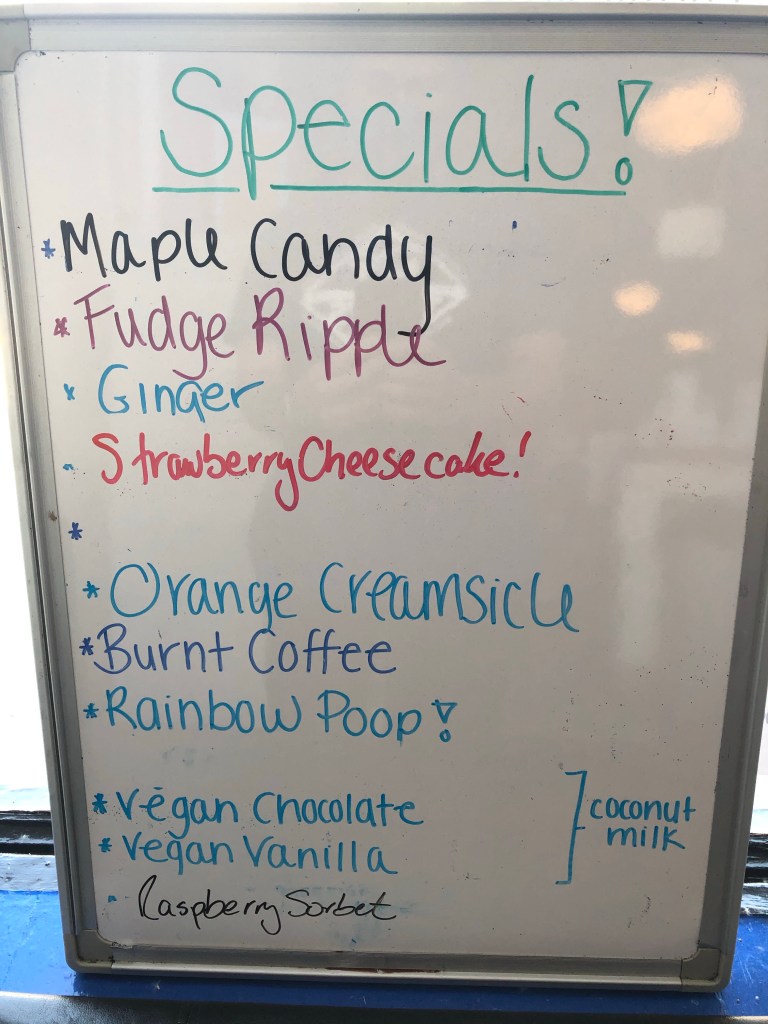 Specials!
* Maple Candy
* Fudge Ripple
* Ginger
- Strawberry Cheesecake!
*
* Orange Creamsicle
* Burnt Coffee
* Rainbow Poop!
* Vegan Chocolate
* Vegan Vanilla
] coconut
milk
- Raspberry Sorbet